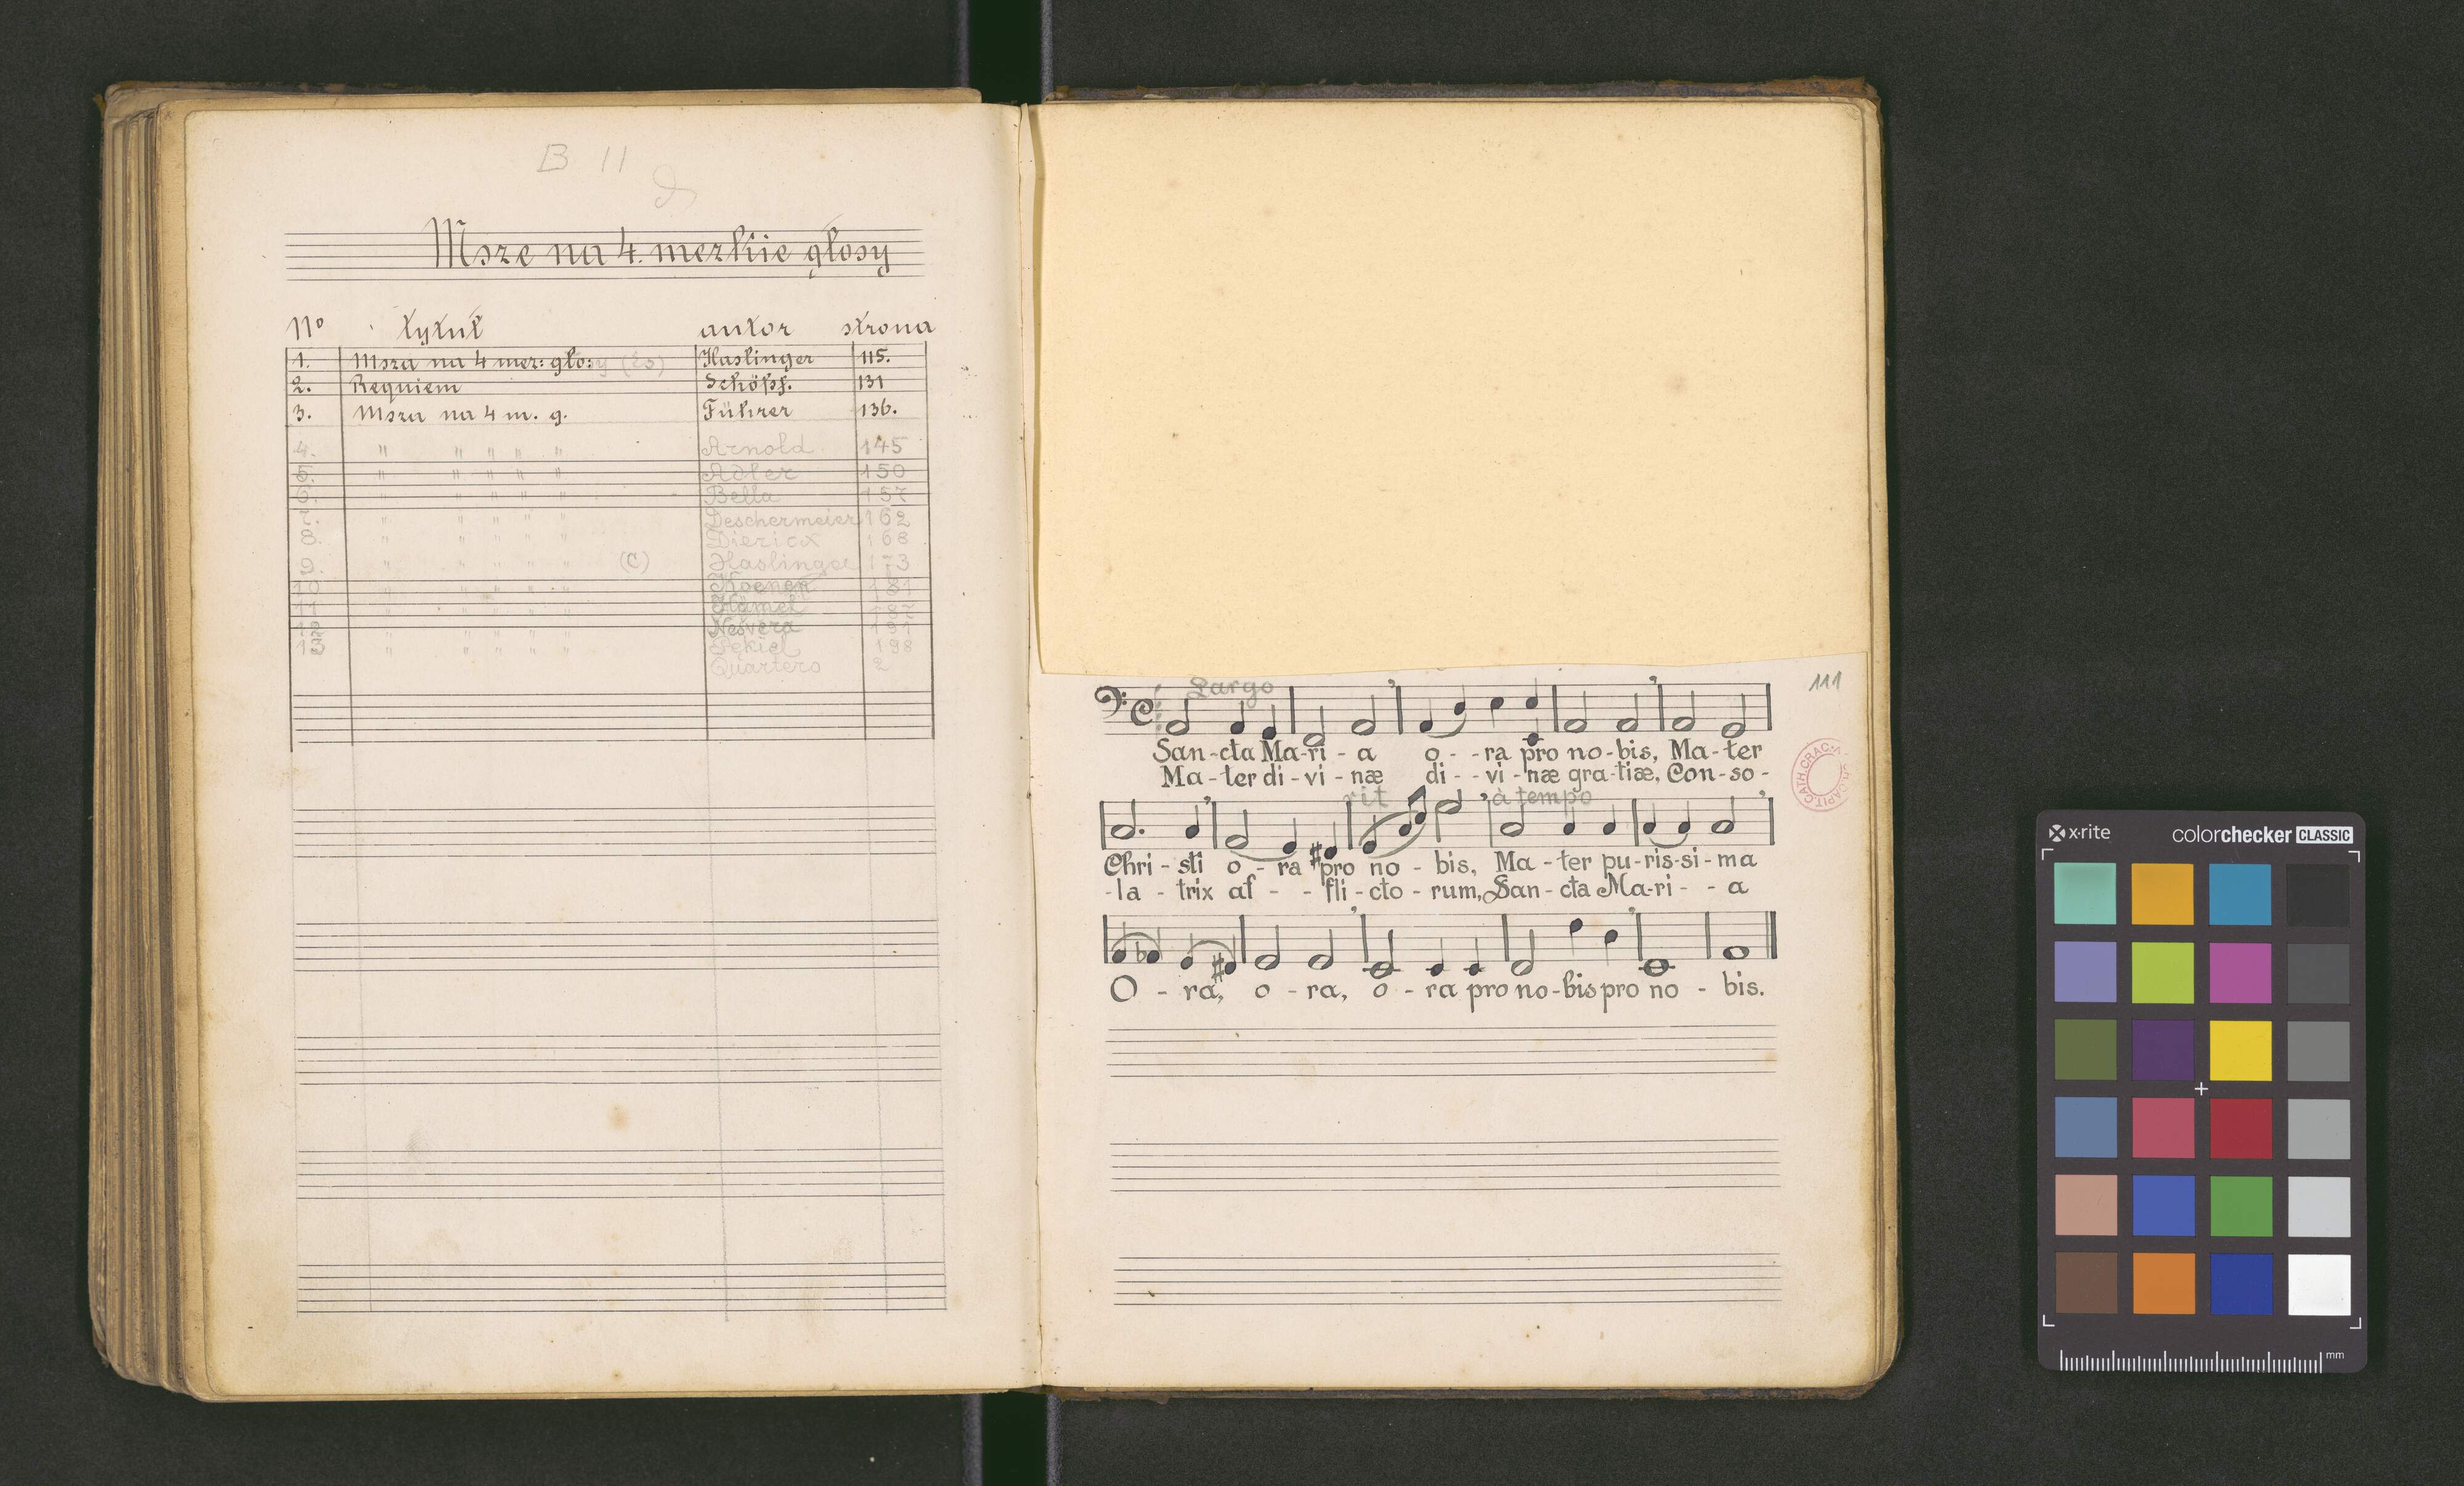 B 11
Msze na 4. mezkie głosy
No tytuł autor strona
1. Msza na 4 mez: głosy (Es) Haslinger 115.
2. Requiem Schöpf. 131
3. Msza na 4 m. g. Führer 136.
4. " " " " " Arnold 145
5. " " " " " Adler 150
6. " " " " " Bella 157
7. " " " " " Deschermeier 162
8. " " " " " Diericx 168
9. " " " " " (C) Haslinger 173
10 " " " " " Koenen 181
11 " " " " " Hämel 187
Nešvera 191
13 " " " " " Pękiel 198
Quartero 2
111
Largo
San-cta Ma-ri-a o--ra pro no-bis, Ma-ter
Ma-ter di-vi-næ di--vi-næ gra-tiæ, Con-so-
rit à tempo
Chri-sti o-ra pro no-bis, Ma-ter pu-ris-si-ma
-la-trix af--fli-cto-rum, San-cta Ma-ri--a
O-ra, o-ra, o-ra pro no-bis pro no-bis.
x-rite colorchecker CLASSIC
mm